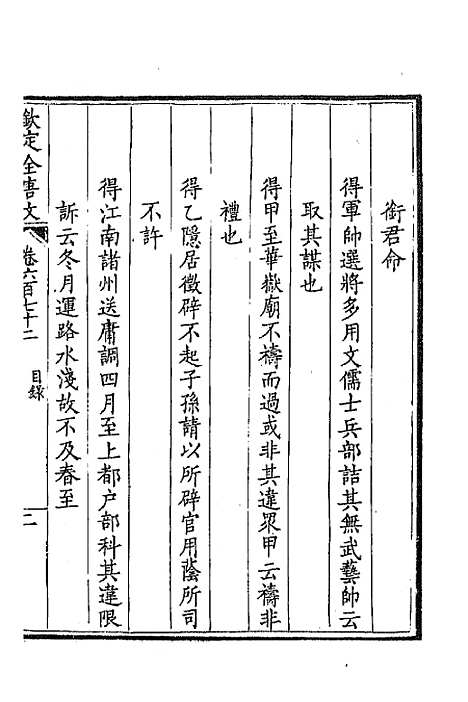 銜君命
得軍帥選將多用文儒士兵部詰其無武藝帥云
取其謀也
得甲至華嶽廟不禱而過或非其違眾甲云禱非
禮也
得乙隱居徵辟不起子孫請以所辟官用蔭所司
不許
得江南諸州送庸調四月至上都户部科其違限
訴云冬月運路水淺故不及春至
欽定全唐文
卷六百七十二
目錄
二